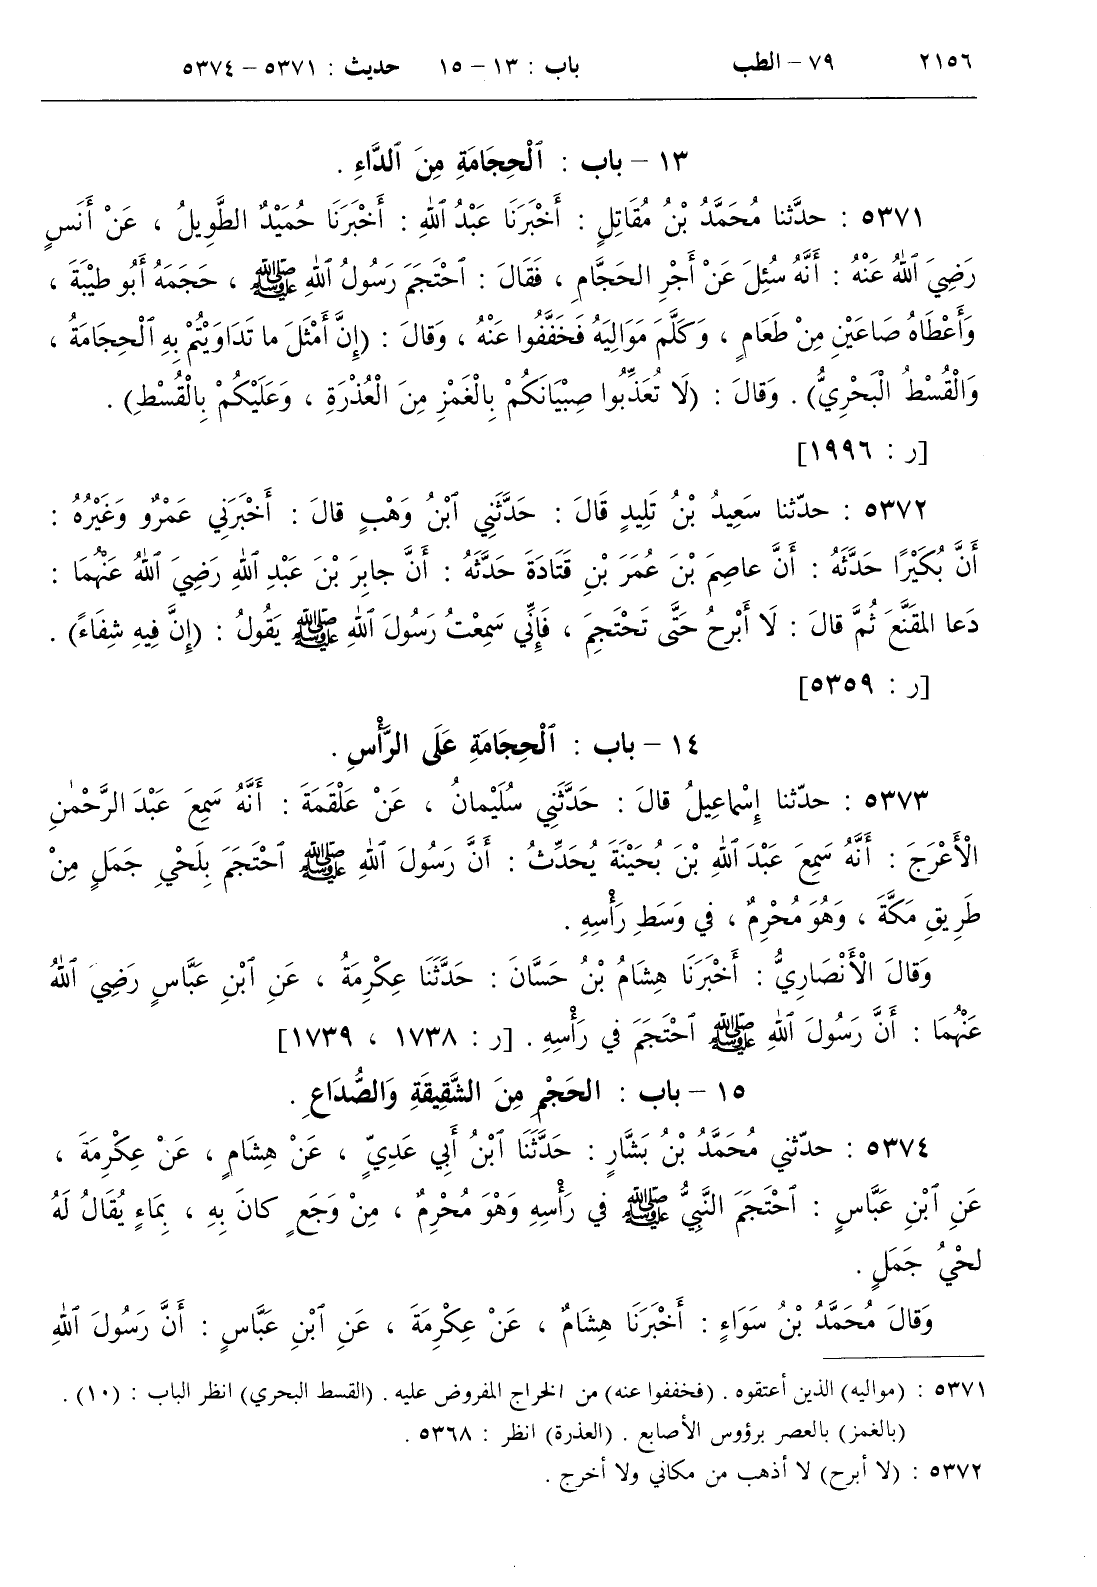 ٢١٥٦ ٧٩ – الطب باب : ١٣ – ١٥ حديث : ٥٣٧١ – ٥٣٧٤
١٣ – باب : ٱلْحِجَامَةِ مِنَ ٱلدَّاءِ .
٥٣٧١ : حدّثنا مُحَمَّدُ بْنُ مُقَاتِلٍ : أَخْبَرَنَا عَبْدُ ٱللهِ : أَخْبَرَنَا حُمَيْدٌ الطَّوِيلُ ، عَنْ أَنَسٍ
رَضِيَ ٱللهُ عَنْهُ : أَنَّهُ سُئِلَ عَنْ أَجْرِ الحَجَّامِ ، فَقَالَ : ٱحْتَجَمَ رَسُولُ ٱللهِ ﷺ ، حَجَمَهُ أَبُو طَيْبَةَ ،
وَأَعْطَاهُ صَاعَيْنِ مِنْ طَعَامٍ ، وَكَلَّمَ مَوَالِيَهُ فَخَفَّفُوا عَنْهُ ، وَقالَ : (إِنَّ أَمْثَلَ ما تَدَاوَيْتُمْ بِهِ ٱلْحِجَامَةُ ،
وَالْقُسْطُ الْبَحْرِيُّ) . وَقالَ : (لَا تُعَذِّبُوا صِبْيَانَكُمْ بِالْغَمْزِ مِنَ الْعُذْرَةِ ، وَعَلَيْكُمْ بِالْقُسْطِ) .
[ر : ١٩٩٦]
٥٣٧٢ : حدّثنا سَعِيدُ بْنُ تَلِيدٍ قَالَ : حَدَّثَنِي ٱبْنُ وَهْبٍ قالَ : أَخْبَرَنِي عَمْرٌو وَغَيْرُهُ :
أَنَّ بُكَيْرًا حَدَّثَهُ : أَنَّ عاصِمَ بْنَ عُمَرَ بْنِ قَتَادَةَ حَدَّثَهُ : أَنَّ جابِرَ بْنَ عَبْدِ ٱللهِ رَضِيَ ٱللهُ عَنْهُمَا :
دَعا المَقَنَّعَ ثُمَّ قالَ : لَا أَبْرحُ حَتَّى تَحْتَجِمَ ، فَإِنِّي سَمِعْتُ رَسُولَ ٱللهِ ﷺ يَقُولُ : (إِنَّ فِيهِ شِفَاءً) .
[ر : ٥٣٥٩]
١٤ – باب : ٱلْحِجَامَةِ عَلَى الرَّأْسِ .
٥٣٧٣ : حدّثنا إِسْماعِيلُ قالَ : حَدَّثَنِي سُلَيْمانُ ، عَنْ عَلْقَمَةَ : أَنَّهُ سَمِعَ عَبْدَ الرَّحْمٰنِ
الْأَعْرَجَ : أَنَّهُ سَمِعَ عَبْدَ ٱللهِ بْنَ بُحَيْنَةَ يُحَدِّثُ : أَنَّ رَسُولَ ٱللهِ ﷺ ٱحْتَجَمَ بِلَحْيِ جَمَلٍ مِنْ
طَرِيقِ مَكَّةَ ، وَهُوَ مُحْرِمٌ ، في وَسَطِ رَأْسِهِ .
وَقالَ الْأَنْصَارِيُّ : أَخْبَرَنَا هِشَامُ بْنُ حَسَّانَ : حَدَّثَنَا عِكْرِمَةُ ، عَنِ ٱبْنِ عَبَّاسٍ رَضِيَ ٱللهُ
عَنْهُمَا : أَنَّ رَسُولَ ٱللهِ ﷺ ٱحْتَجَمَ في رَأْسِهِ . [ر : ١٧٣٨ ، ١٧٣٩]
١٥ – باب : الحَجْمِ مِنَ الشَّقِيقَةِ وَالصُّدَاعِ .
٥٣٧٤ : حدّثني مُحَمَّدُ بْنُ بَشَّارٍ : حَدَّثَنَا ٱبْنُ أَبِي عَدِيٍّ ، عَنْ هِشَامٍ ، عَنْ عِكْرِمَةَ ،
عَنِ ٱبْنِ عَبَّاسٍ : ٱحْتَجَمَ النَّبِيُّ ﷺ في رَأْسِهِ وَهْوَ مُحْرِمٌ ، مِنْ وَجَعٍ كانَ بِهِ ، بِمَاءٍ يُقَالُ لَهُ
لحْيُ جَمَلٍ .
وَقالَ مُحَمَّدُ بْنُ سَوَاءٍ : أَخْبَرَنَا هِشَامٌ ، عَنْ عِكْرِمَةَ ، عَنِ ٱبْنِ عَبَّاسٍ : أَنَّ رَسُولَ ٱللهِ
٥٣٧١ : (مواليه) الذين أعتقوه . (فخففوا عنه) من الخراج المفروض عليه . (القسط البحري) انظر الباب : (١٠) .
(بالغمز) بالعصر برؤوس الأصابع . (العذرة) انظر : ٥٣٦٨ .
٥٣٧٢ : (لا أبرح) لا أذهب من مكاني ولا أخرج .